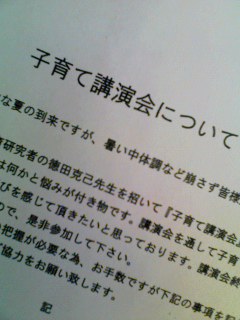 子育て講演会について
な夏の到来ですが、暑い中体調など崩さず皆様
研究者の徳田克己先生を招いて『子育て講演会
は何かと悩みが付き物です。講演会を通して子育
びを感じて頂きたいと思っております。講演会終
ので、是非参加して下さい。
把握が必要な為、お手数ですが下記の事項を記
ご協力をお願い致します。
記